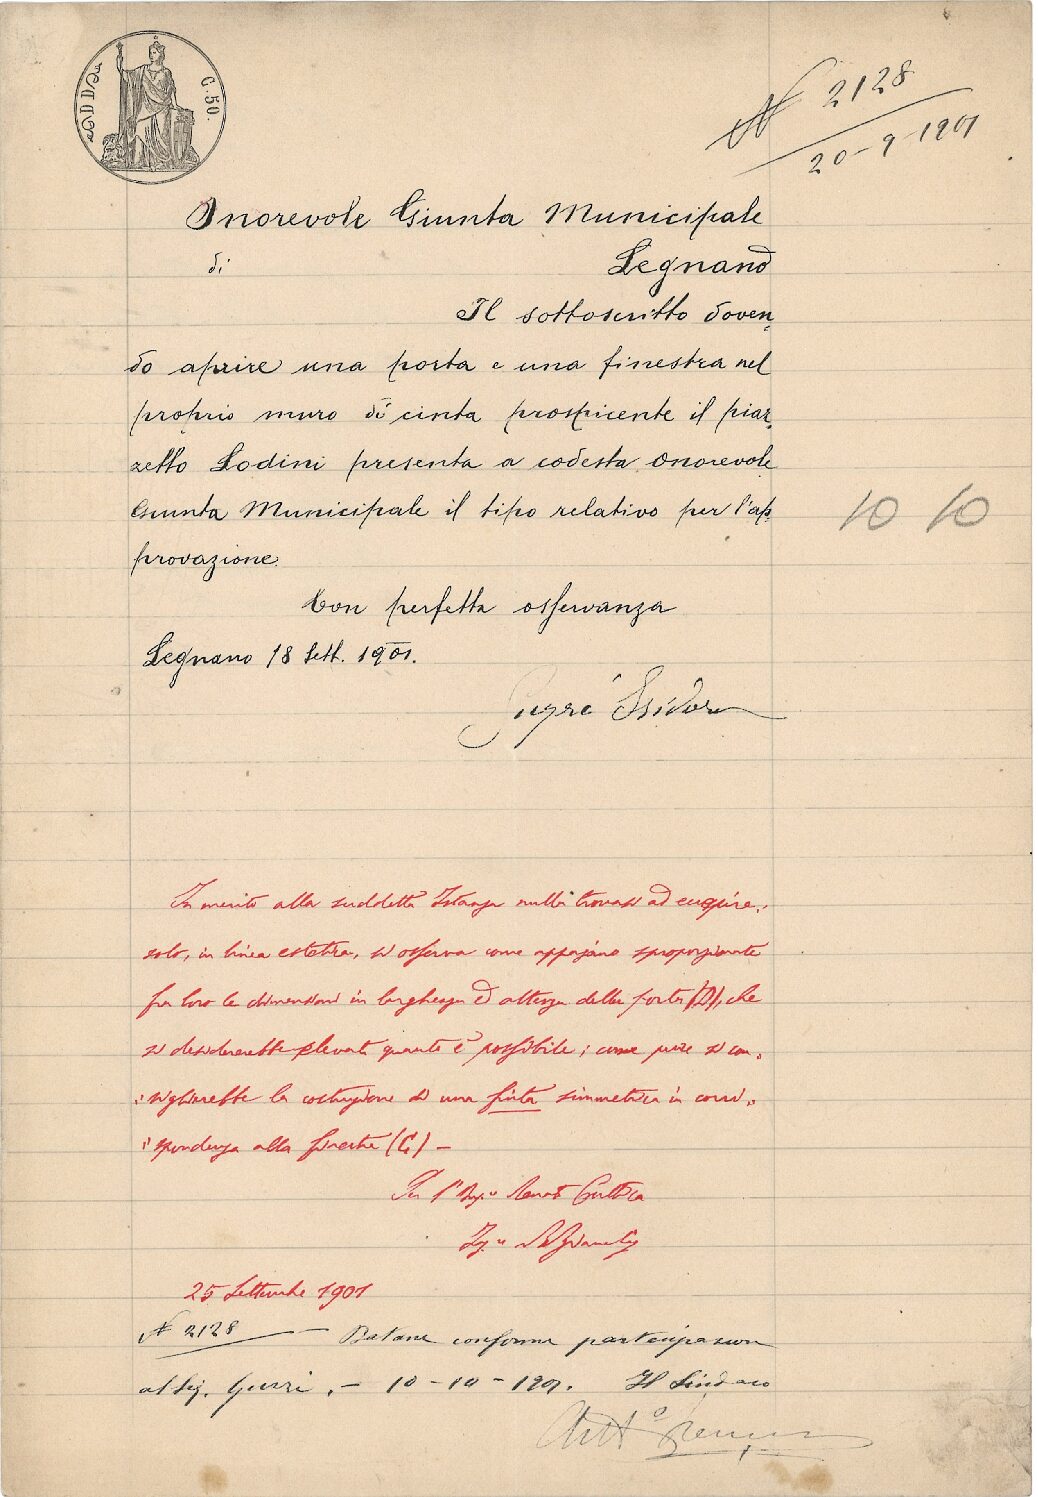 C. 50.
N 2128
20-9-1901
Onorevole Giunta Municipale
di Legnano
Il sottoscritto doven,
do aprire una porta e una finestra nel
proprio muro di cinta prospicente il piaz,
zetto Lodini presenta a codesta onorevole
Giunta Municipale il tipo relativo per l'ap,
provazione.
Con perfetta osservanza
Legnano 18 Sett. 1901.
Isidoro
10 10
In merito alla suddetta Istanza nulla trovasi ad eccepire;
solo, in linea estetica, si osserva come appajano sproporzionate
fra loro le dimensioni in larghezza ed altezza della porta (D), che
si desidererebbe elevata quanto è possibile; come pure si con„
„siglierebbe la costruzione di una finta simmetrica in corri„
„spondenza alla finestra (C) -
Per l'Ing.e Renato Cuttica
Ing.e
25 Settembre 1901
N 2128 - conforme partecipazione
al Sig. - 10-10-1901. Il Sindaco